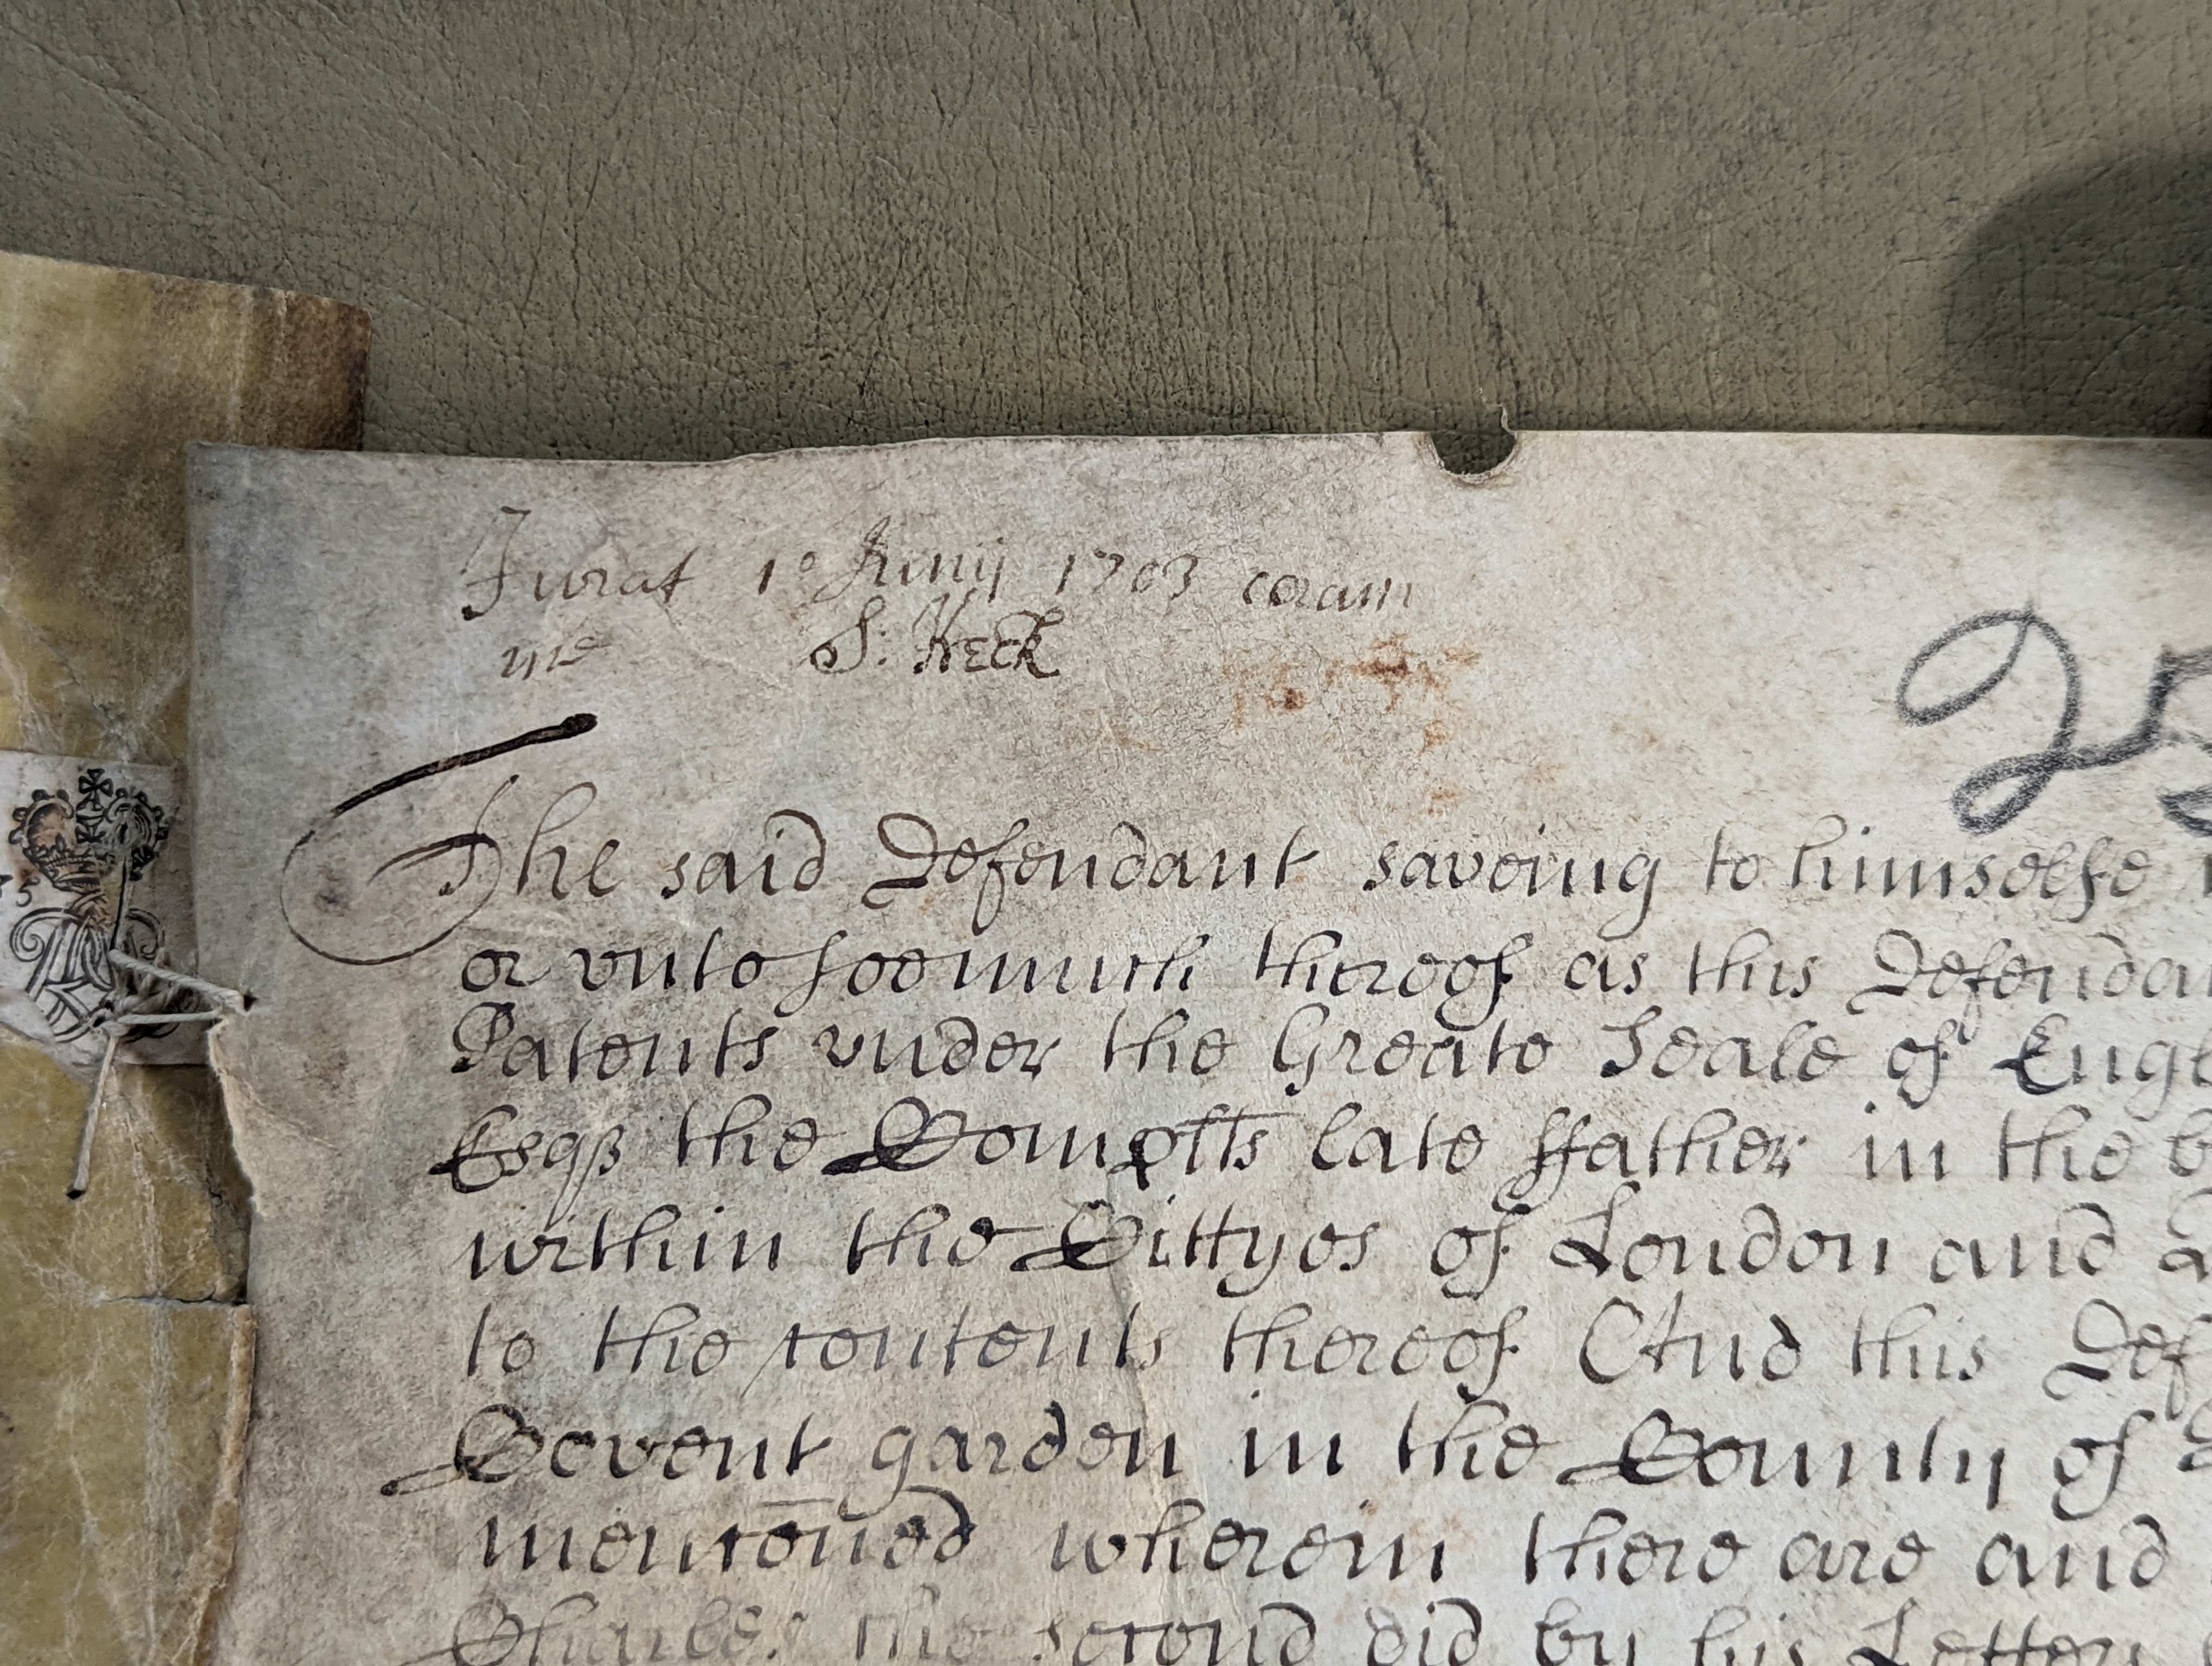 Jurat 1o Junij 1703 coram
me S: Keck
25
The said Defendant saveing to himselfe
or vnto soe much thereof as this Defenda
Patents vnder the Greate Seale of Engl
Esqr the Compltts late ffather in the
within the Cittyes of London and
to the contents thereof And this Def
Covent garden in the County of
mentoned wherein there are and
Charles the second did by his Letters